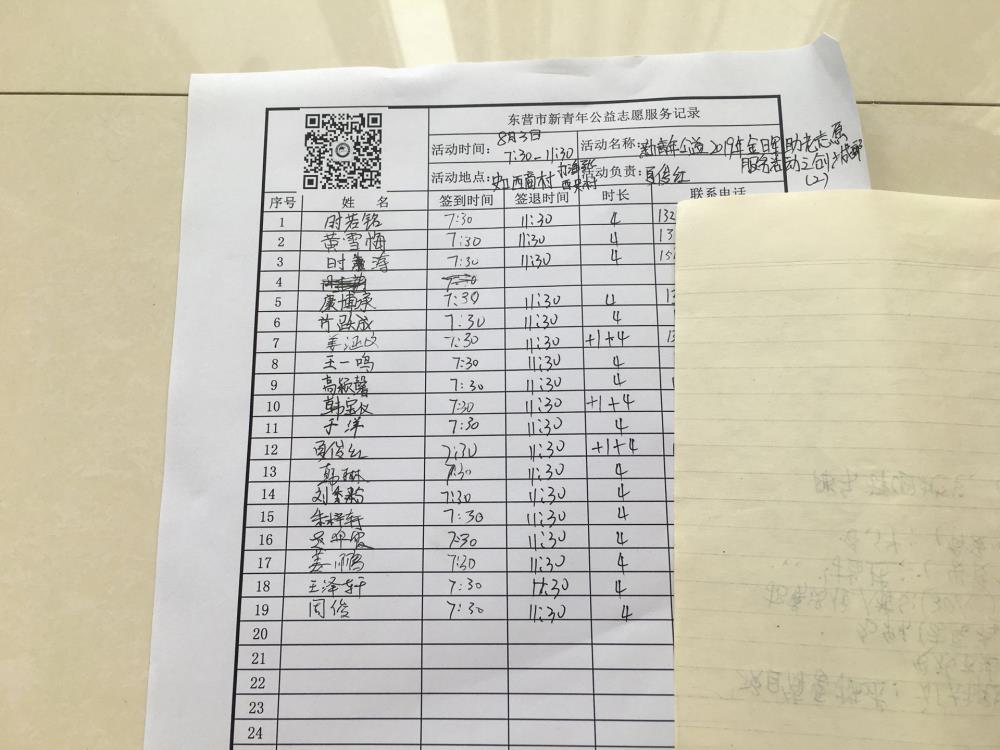 东营市新青年公益志愿服务记录
活动时间: 8月3日 7:30-11:30 活动名称: 新青年公益2019年金晖助老志愿
服务活动之创
(2)
活动地点: 西商村 活动负责: 夏俊红
序号 姓 名 签到时间 签退时间 时长 联系电话
1 时若铭 7:30 11:30 4 132
2 黄雪梅 7:30 11:30 4 13
3 时 涛 7:30 11:30 4 15
4 7:30
5 康博承 7:30 11:30 4 13
6 7:30 11:30 4
7 姜 7:30 11:30 +1+4 13
8 王一鸣 7:30 11:30 4
9 高颖馨 7:30 11:30 4
10 韩宝仪 7:30 11:30 +1+4
11 于洋 7:30 11:30 4
12 夏俊红 7:30 11:30 +1+4
13 韩琳 7:30 11:30 4
14 刘 7:30 11:30 4
15 朱梓轩 7:30 11:30 4
16 7:30 11:30 4
17 姜鹏 7:30 11:30 4
18 王泽轩 7:30 11:30 4
19 周俊 7:30 11:30 4
20
21
22
23
24